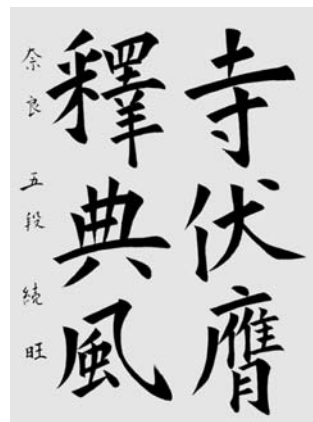 寺伏膺
釋典風
奈良 五段 続 旺